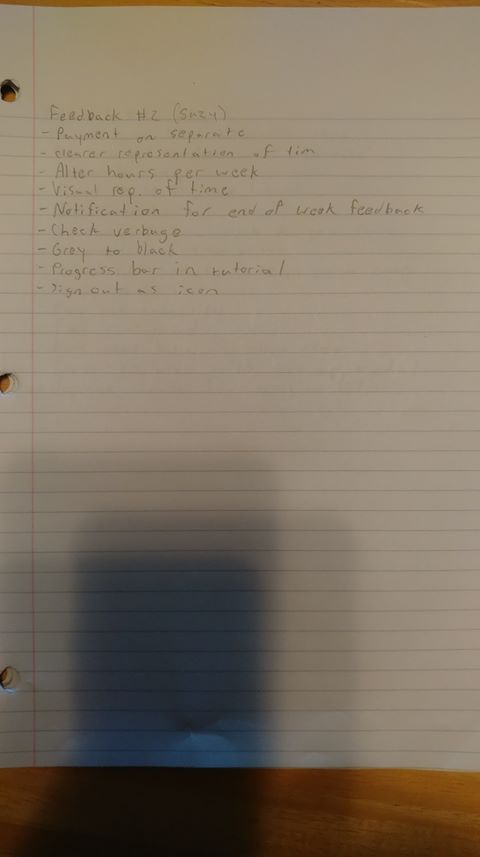 Feedback #2 (Suzy)
- Payment on separate
- clearer representation of tim
- Alter hours per week
- Visual rep. of time
- Notification for end of week feedback
- Check verbuge
- Grey to black
- Progress bar in tutorial
- Sign out as icon